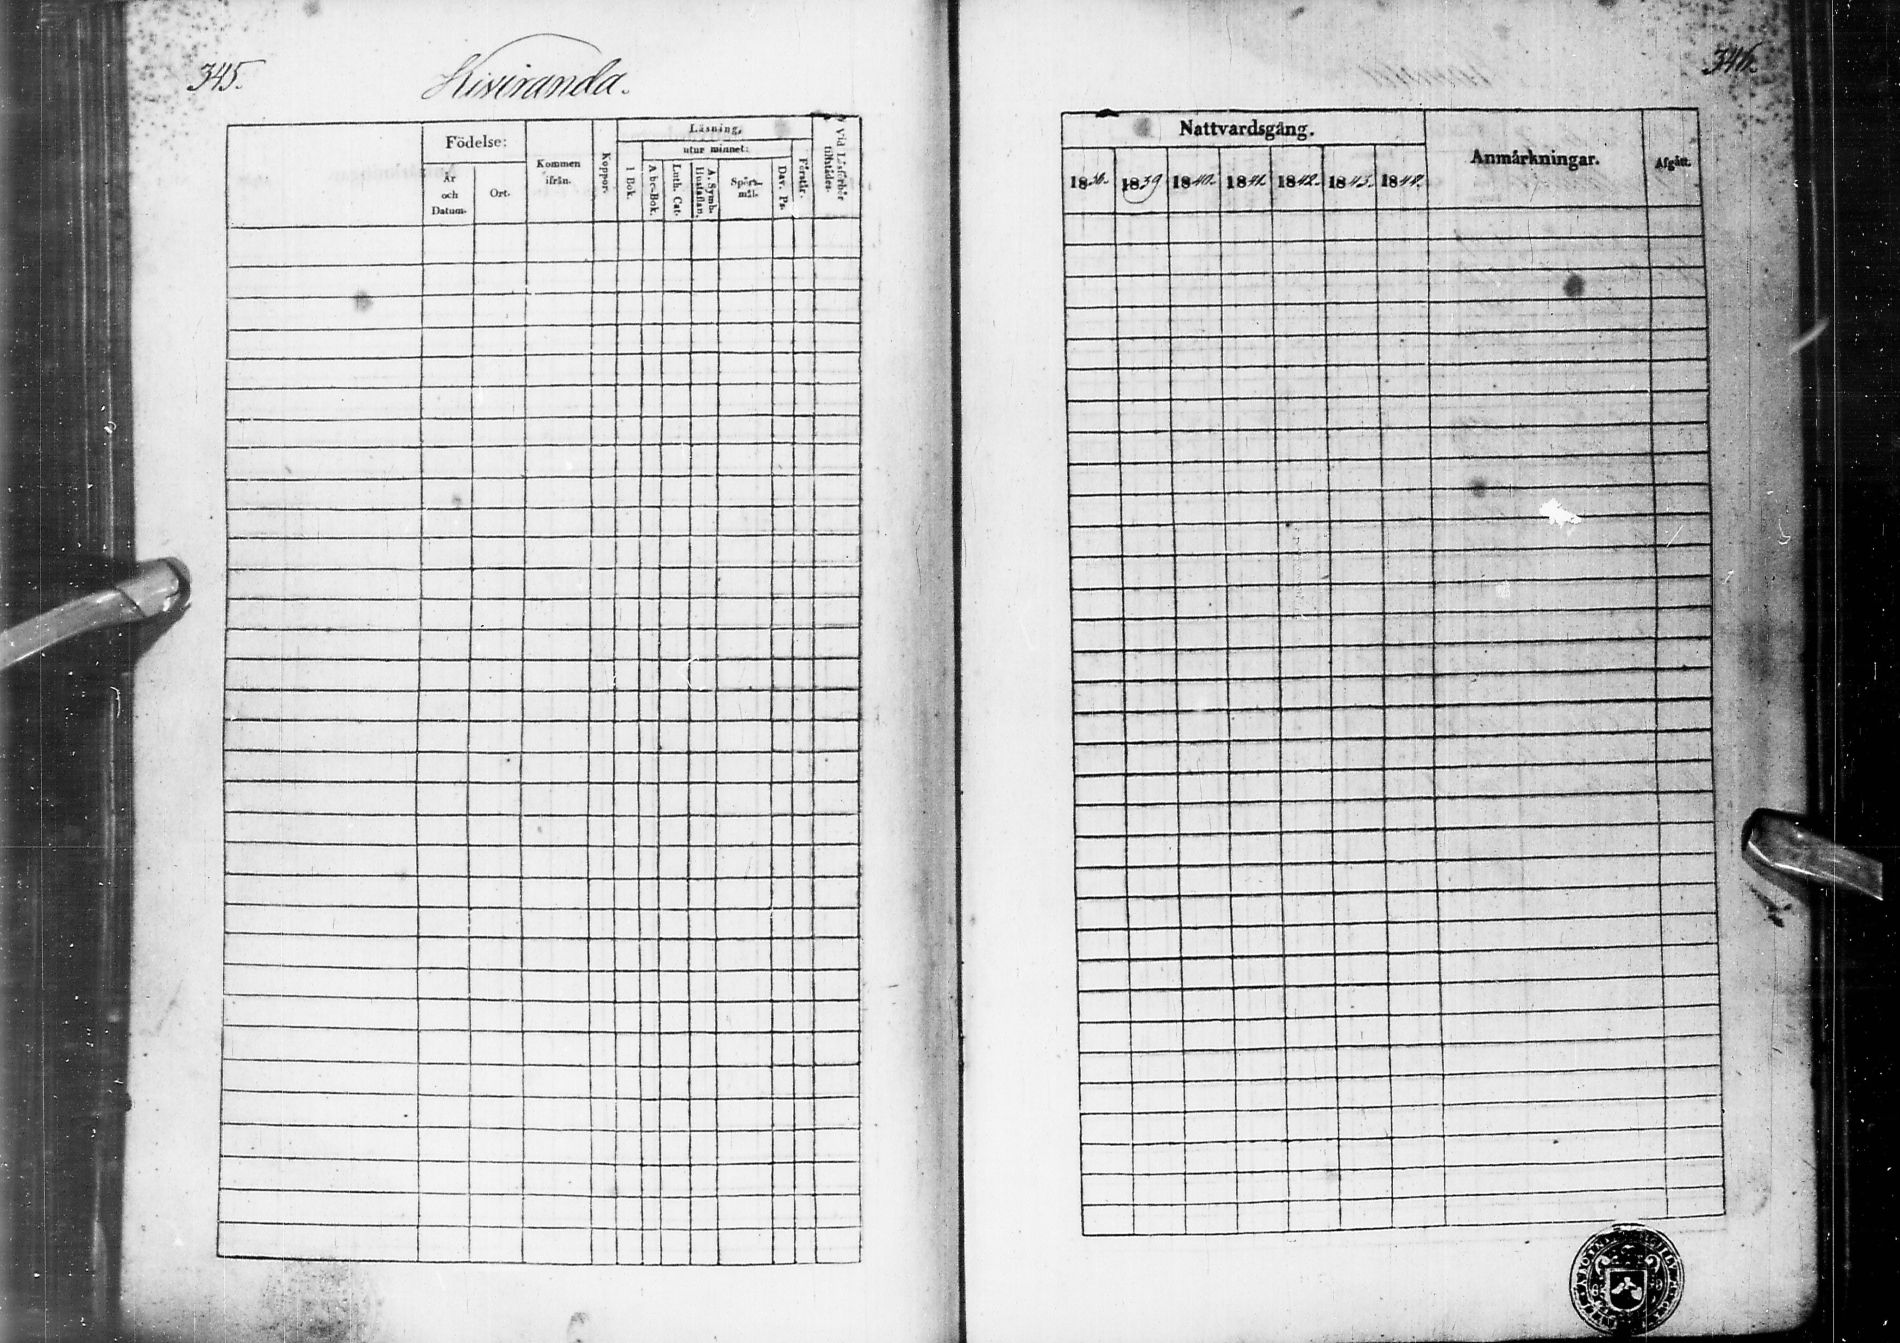 345.
Kiviranda.
Födelse:
År
och
Datum.
Ort.
Kommen
ifrån.
Koppor.
Läsning,
utur minnet:
1 Bok.
Abc-Bok.
Luth. Cat.
A. Symb.
Hustaflan.
Spörs-
mål.
Dav. Ps.
Förstår.
Vid Läsförhör
tillstädes.
346.
Nattvardsgång.
1838. 1839 1840. 1841. 1842. 1843. 1844.
Anmärkningar.
Afgått.